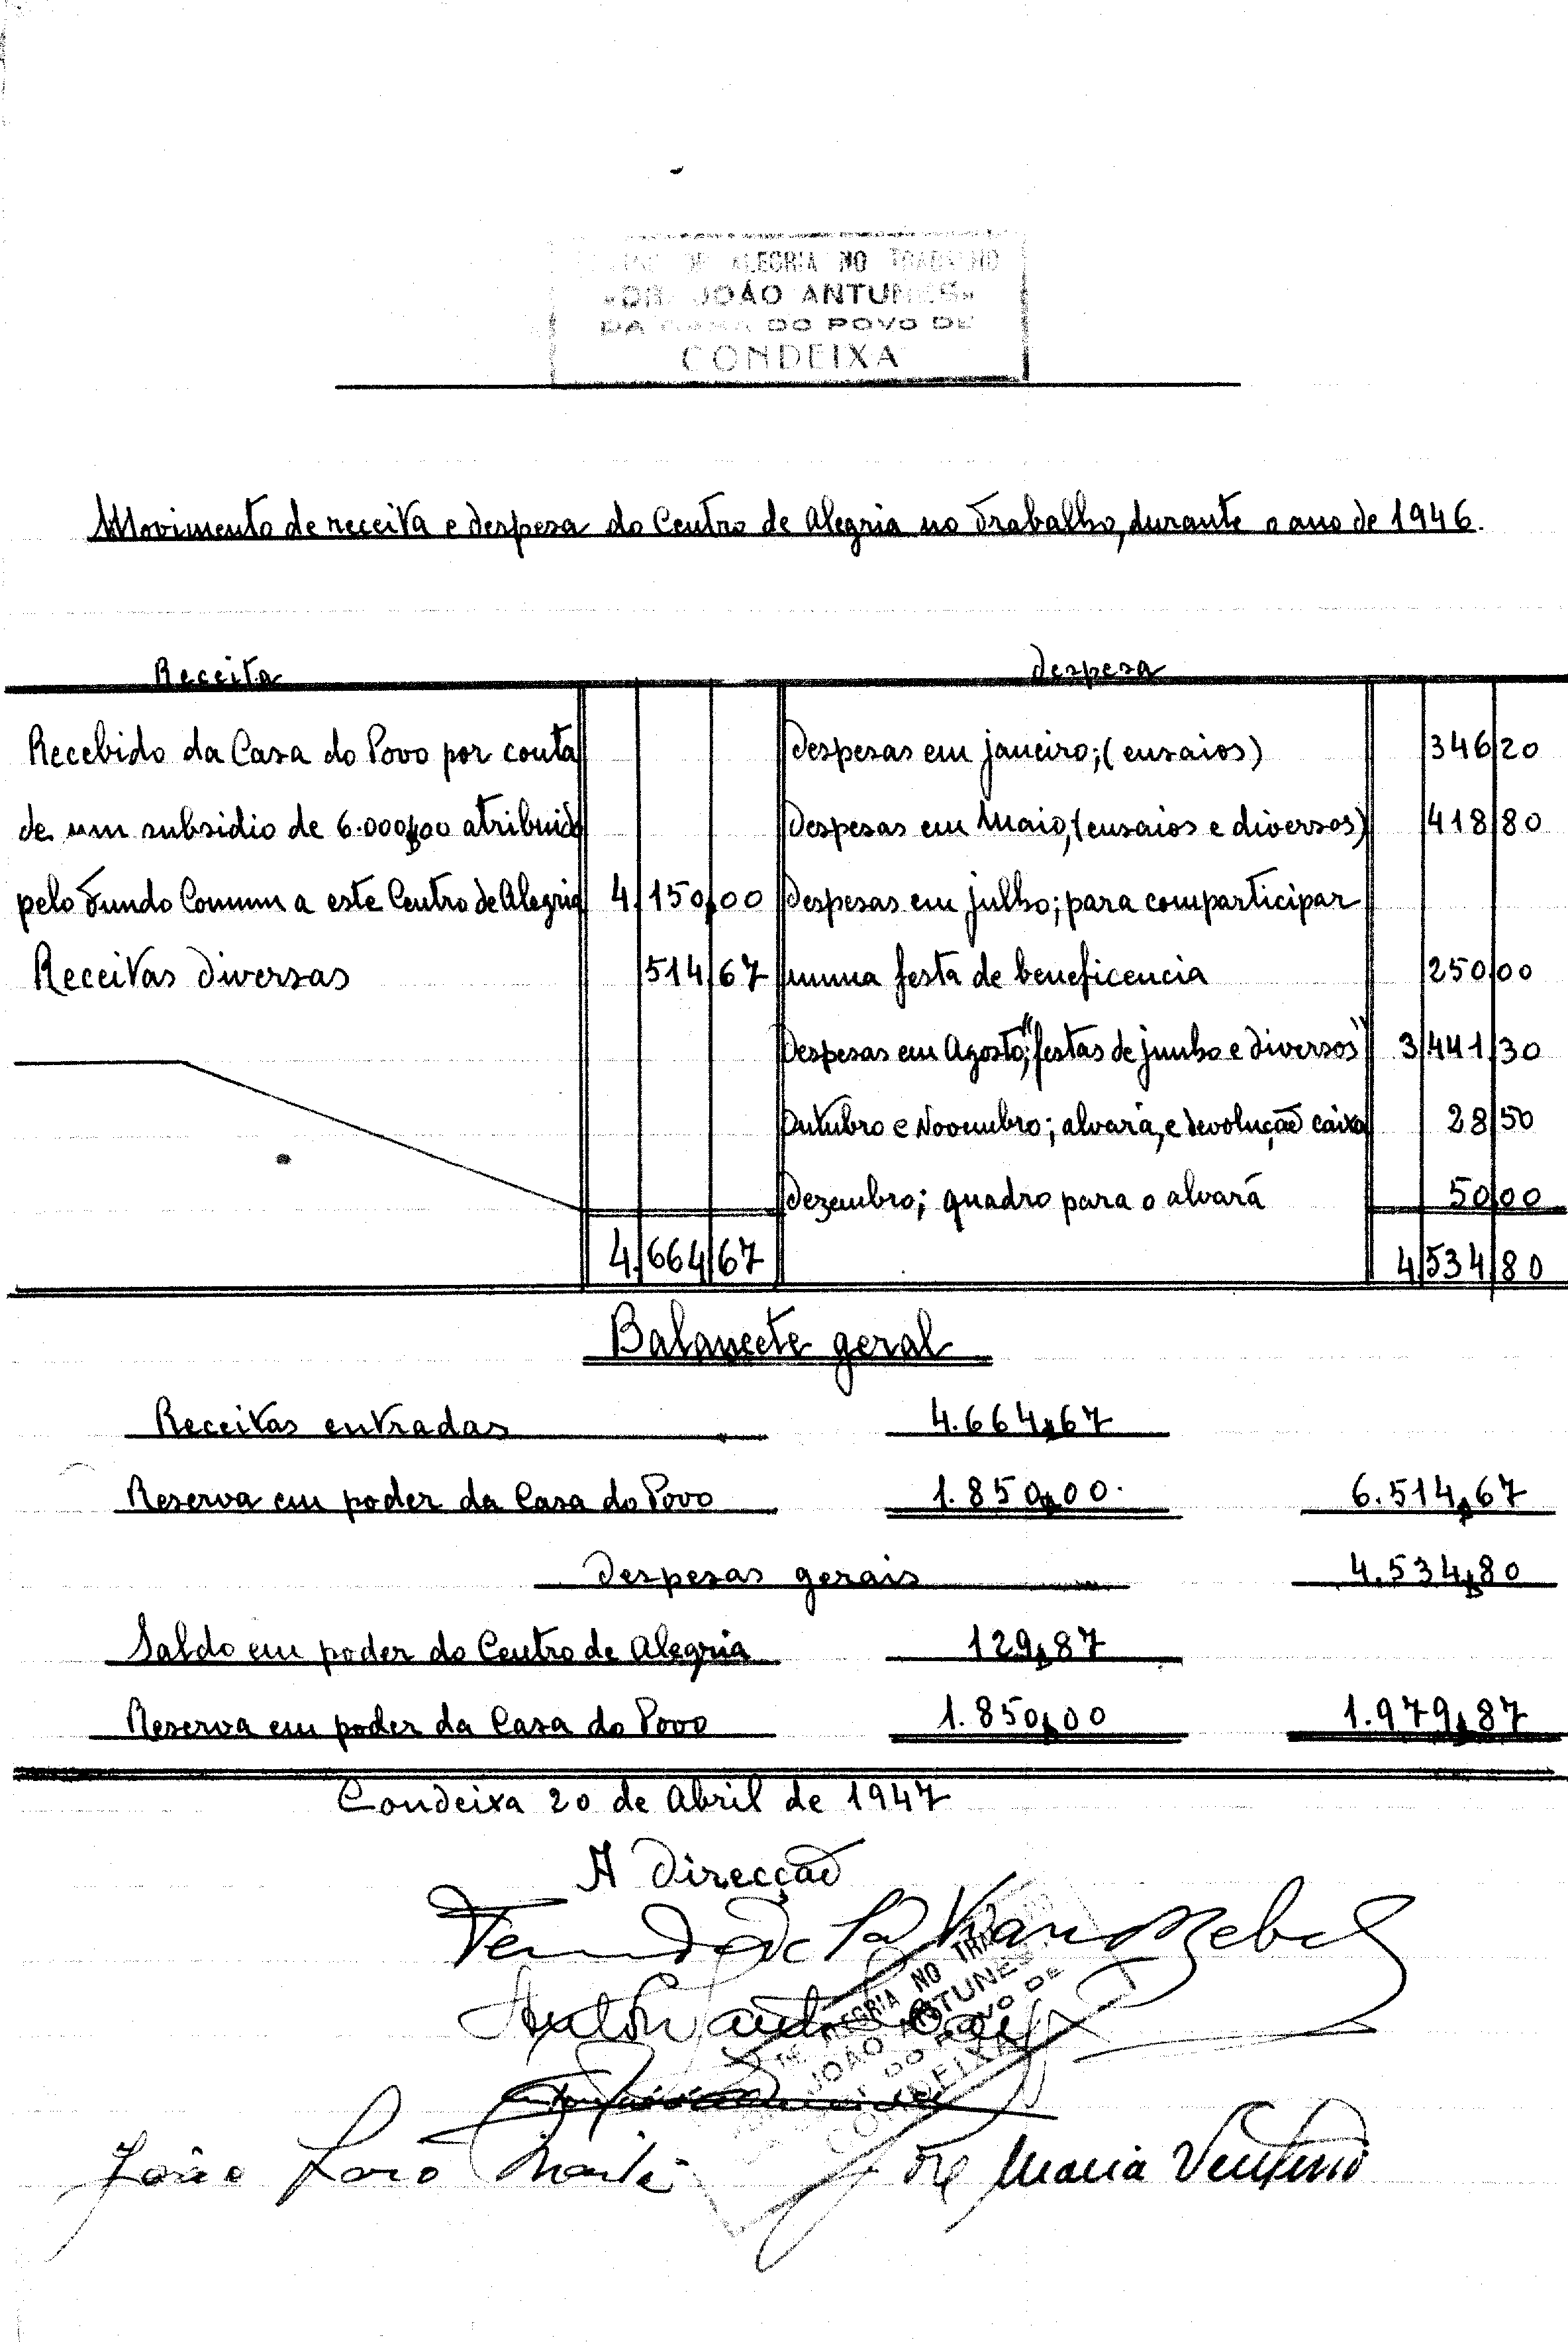 DE ALEGRIA NO TRABALHO
«DR. JOÃO ANTUNES»
DA CASA DO POVO DE
CONDEIXA
Movimento de receita e despesa do Centro de Alegria no Trabalho, durante o ano de 1946.
Receita
Recebido da Casa do Povo por conta
de um subsidio de 6.000$00 atribuido
pelo Fundo Comum a este Centro de Alegria 4.150,00
Receitas diversas 514 67
4.664 67
Despesa
Despesas em janeiro; (ensaios) 346 20
Despesas em Maio, (ensaios e diversos) 418 80
Despesas em julho; para comparticipar
numa festa de beneficencia 250 00
Despesas em Agosto; "festas de junho e diversos" 3 441 30
Outubro e Novembro; alvará, e devolução caixa 28 50
Dezembro; quadro para o alvará 50 00
4 534 80
Balancete geral
Receitas entradas 4.664$67
Reserva em poder da Casa do Povo 1.850$00 6.514$67
Despesas gerais 4.534$80
Saldo em poder do Centro de Alegria 129$87
Reserva em poder da Casa do Povo 1.850$00 1.979$87
Condeixa 20 de Abril de 1947
A Direcção
DE ALEGRIA NO TRA
JOÃO ANTUNES
DO POVO DE
CONDEIXA
João
Maria